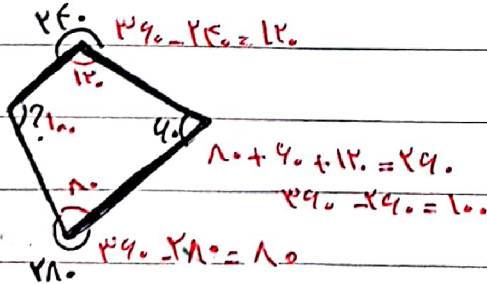 ۲۴۰
۳۶۰ - ۲۴۰ = ۱۲۰
۱۲۰
? ۱۰۰
۶۰
۸۰ + ۶۰ + ۱۲۰ = ۲۶۰
۳۶۰ - ۲۶۰ = ۱۰۰
۸۰
۳۶۰ - ۲۸۰ = ۸۰
۲۸۰